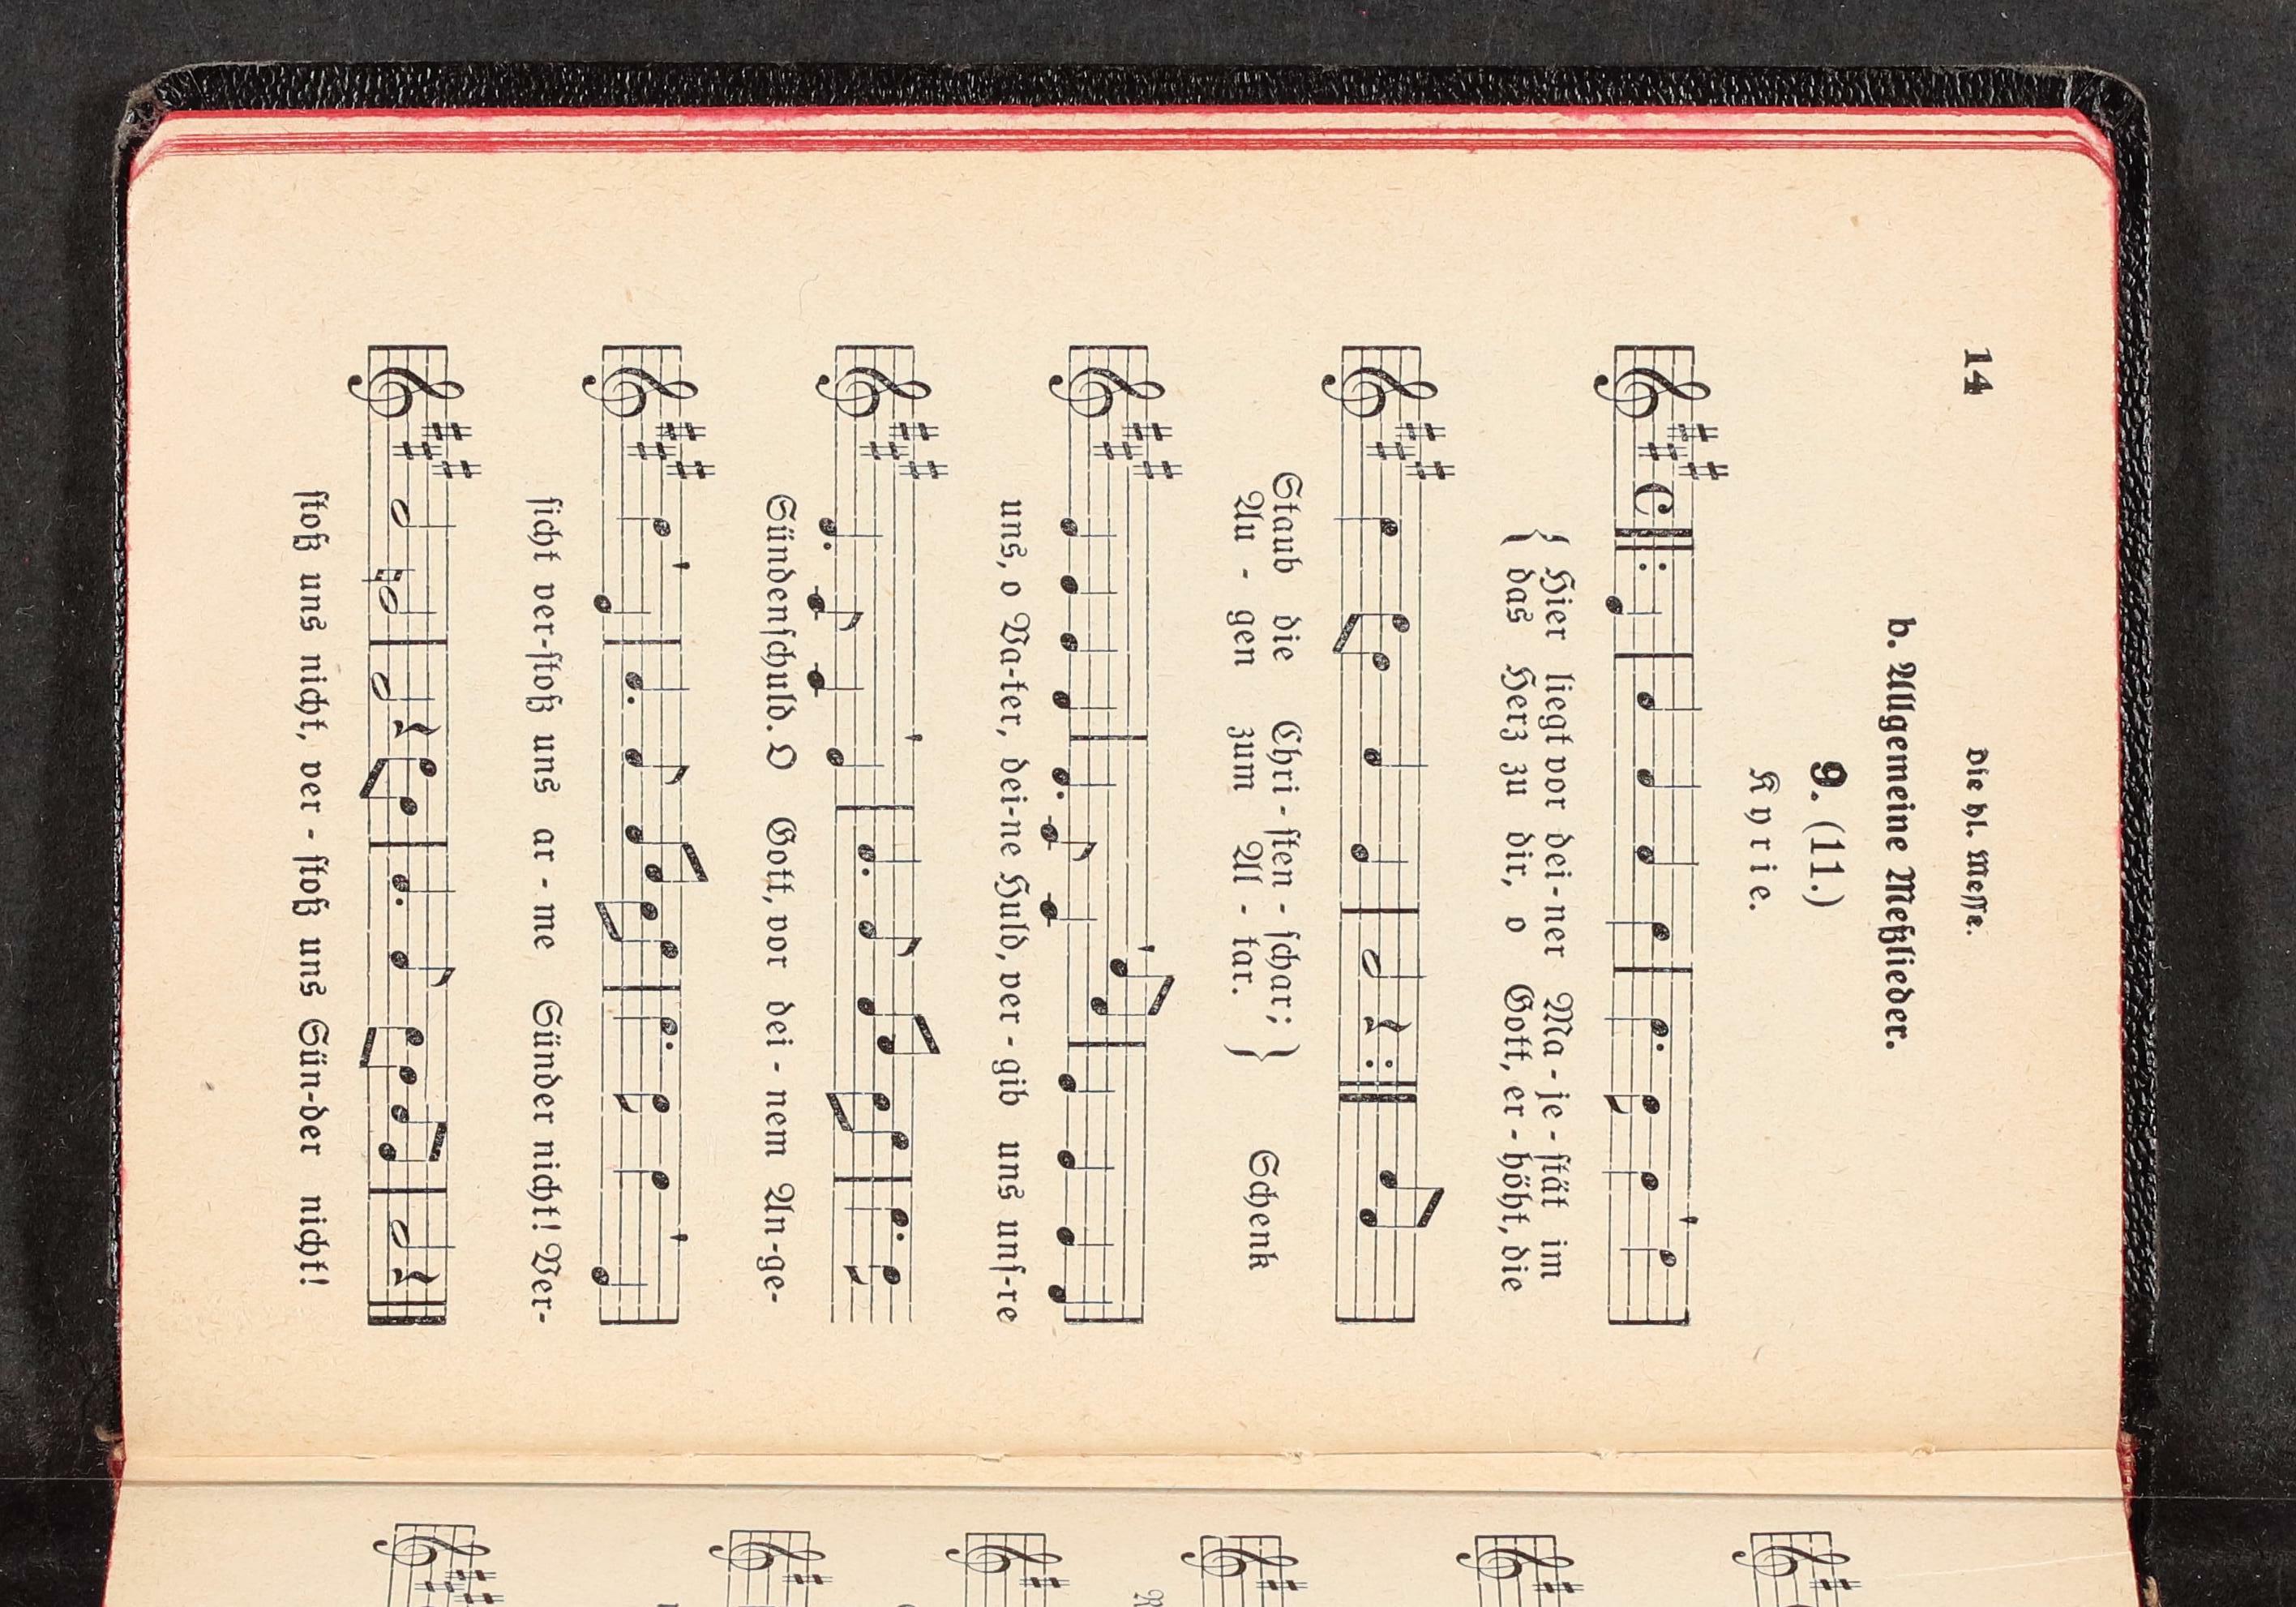 14
Die hl. Messe.
b. Allgemeine Meßlieder.
9. (11.)
Kyrie.
{ Hier liegt vor dei-ner Ma-je-stät im
{ das Herz zu dir, o Gott, er-höht, die
Staub die Chri-sten-schar; }
Au-gen zum Al-tar. } Schenk
uns, o Va-ter, dei-ne Huld, ver-gib uns uns-re
Sündenschuld. O Gott, vor dei-nem An-ge-
sicht ver-stoß uns ar-me Sünder nicht! Ver-
stoß uns nicht, ver-stoß uns Sün-der nicht!